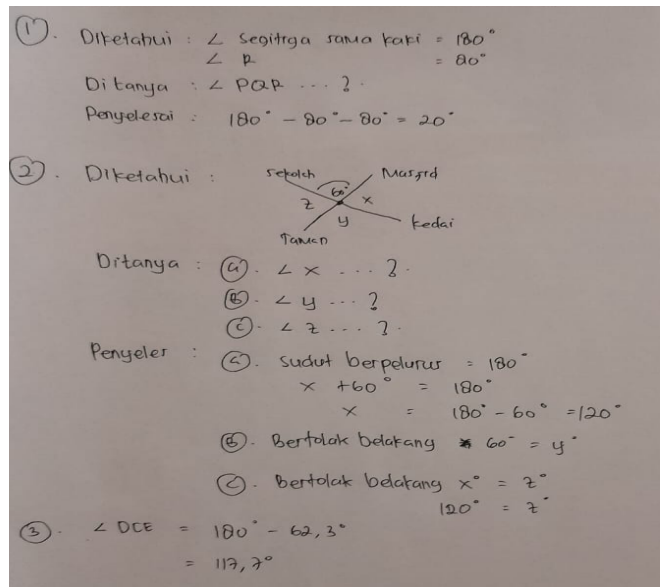 1. Diketahui : ∠ Segitiga sama kaki = 180°
∠ R = 80°
Ditanya : ∠ PQR ... ?
Penyelesai : 180° - 80° - 80° = 20°
2. Diketahui :
Sekolah Masjid
60°
z x
y
Taman Kedai
Ditanya : a. ∠ x ... ?
b. ∠ y ... ?
c. ∠ z ... ?
Penyeles : a. Sudut berpelurus = 180°
x + 60° = 180°
x = 180° - 60° = 120°
b. Bertolak belakang 60° = y°
c. Bertolak belakang x° = z°
120° = z°
3. ∠ DCE = 180° - 62,3°
= 117,7°